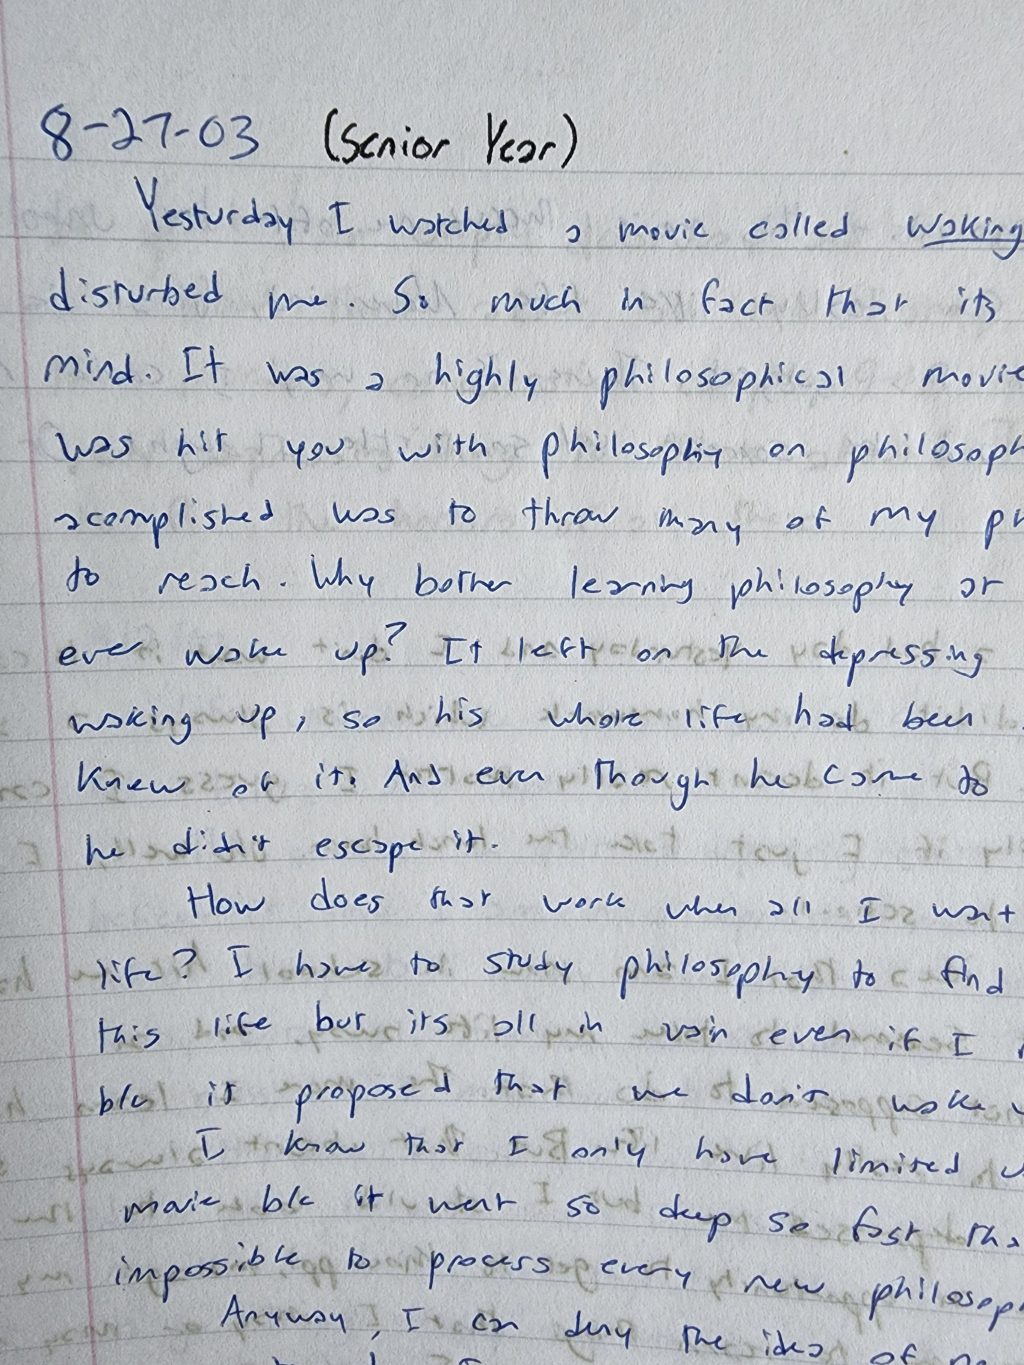 8-27-03 (Senior Year)
Yesturday I watched a movie called Waking
disturbed me. So much in fact that its
mind. It was a highly philosophical movie
was hit you with philosophy on philosoph
acomplished was to throw many of my pr
to reach. Why bother learning philosophy or
ever wake up? It left on the depressing
waking up, so his whole life had been
knew of it. And even though he came to
he didn't escape it.
How does that work when all I want
life? I have to study philosophy to find
this life but its all in vain even if I
b/c it proposed that we don't wake
I know that I only have limited u
movie b/c it went so deep so fast tha
impossible to process every new philosop
Anyway, I can deny the idea of